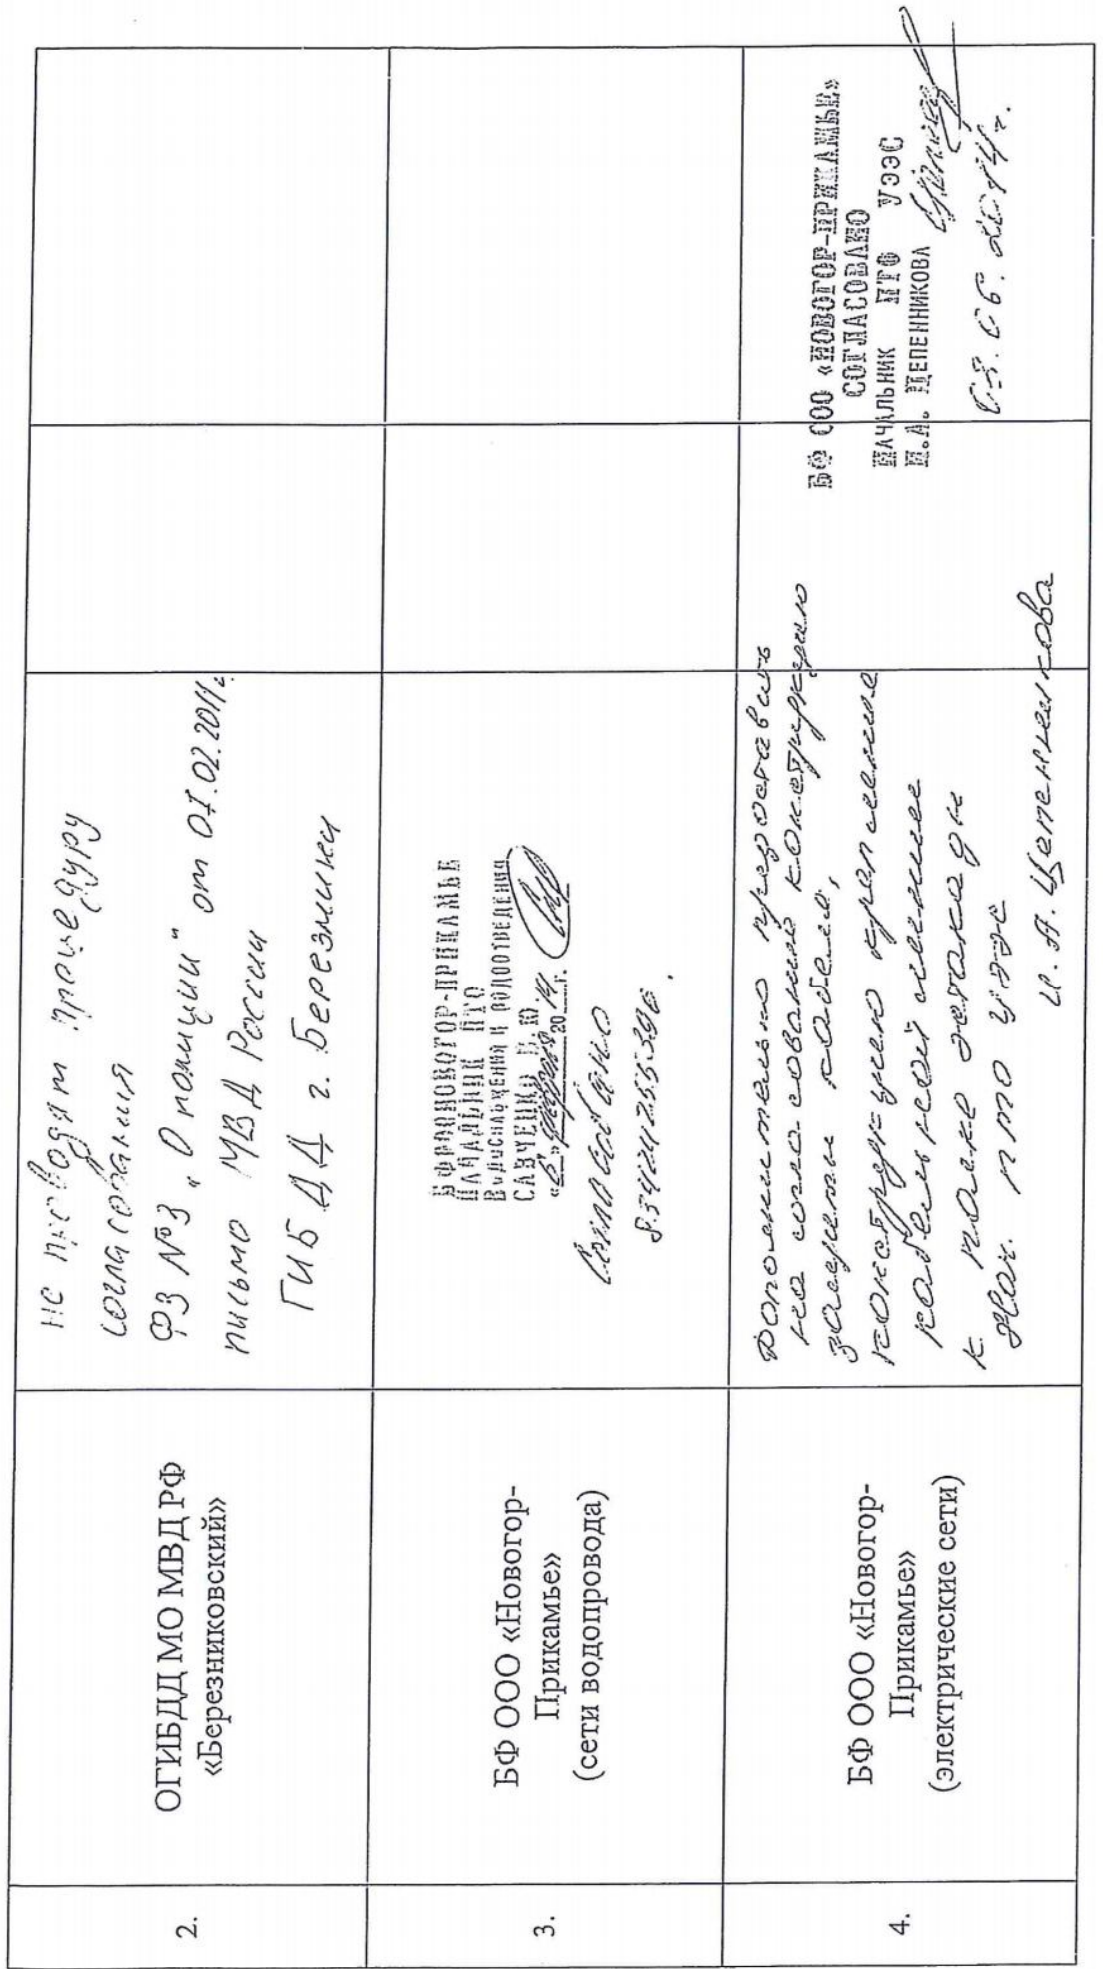 2.
ОГИБДД МО МВД РФ
«Березниковский»
не проводят процедуру
согласования
ФЗ №3 "О полиции" от 07.02.2011г.
письмо МВД России
ГИБДД г. Березники
3.
БФ ООО «Новогор-
Прикамье»
(сети водопровода)
НАЧАЛЬНИК ПТО
ВОДОСНАБЖЕНИЯ И ВОДООТВЕДЕНИЯ
САВЧЕНКО
2014 г.
Согласовано
83424255396.
4.
БФ ООО «Новогор-
Прикамье»
(электрические сети)
Дополнительно предоставить
на согласование конструкцию
защиты кабеля,
конструкцию крепления
кабельной линии
к
Нач. ПТО УЭЭС
И.А. Цепенникова
БФ ООО «НОВОГОР-ПРИКАМЬЕ»
СОГЛАСОВАНО
НАЧАЛЬНИК ПТО УЭЭС
И.А. ЦЕПЕННИКОВА
03.06.2014г.